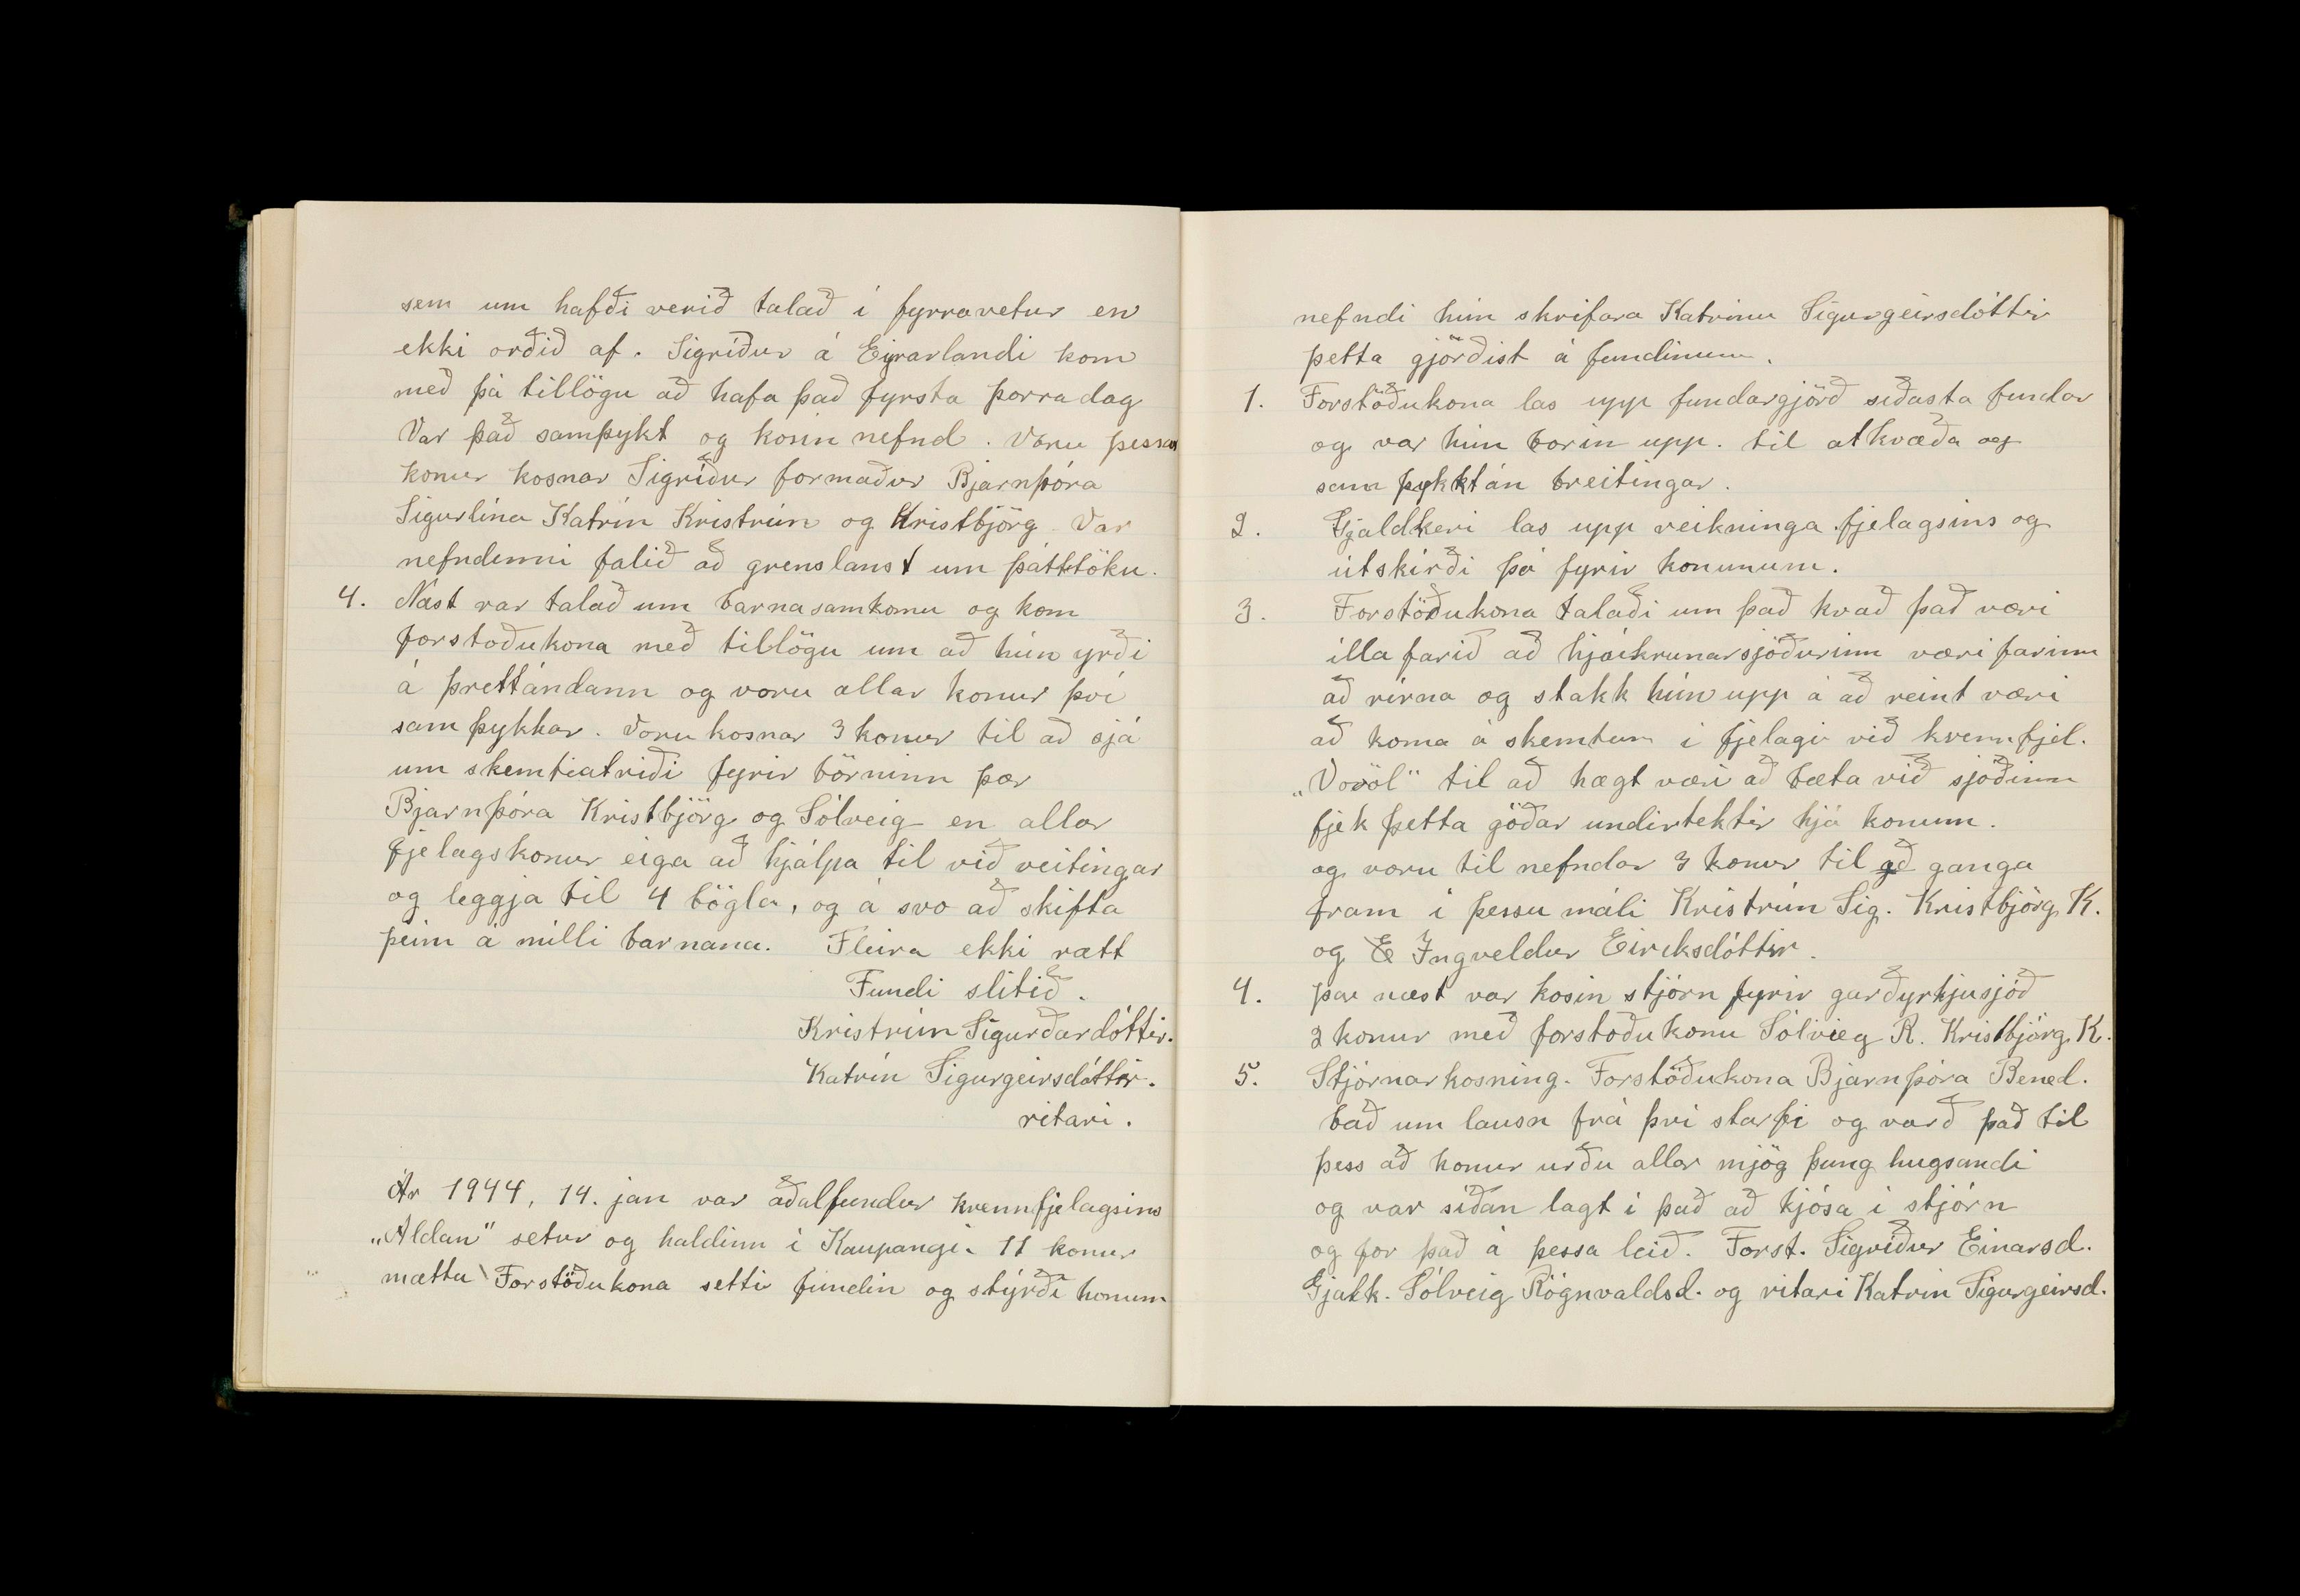 sem um hafði verið talað í fyrravetur en
ekki orðið af. Sigríður á Eyrarlandi kom
með þá tillögu að hafa það fyrsta þorradag
Var það samþykt og kosin nefnd. Voru þessar
konur kosnar Sigríður formaður Bjarnþóra
Sigurlína Katrín Kristrún og Kristbjörg. Var
nefndenni falið að grenslanst um þátttöku.
4. Næst var talað um barnasamkomu og kom
forstoðukona með tillögu um að hún yrði
á þrettándann og voru allar konur því
samþykkar. Voru kosnar 3 konur til að sjá
um skemtiatriði fyrir börninn þær
Bjarnþóra Kristbjörg og Sólveig en allar
fjelagskonur eiga að hjálpa til við veitingar
og leggja til 4 bögla, og á svo að skifta
þeim á milli barnana. Fleira ekki rætt
Fundi slitið.
Kristrún Sigurðardóttir.
Katrín Sigurgeirsdóttir.
ritari.
Ár 1944, 14. jan var aðalfundur kvennfjelagsins
„Aldan" setur og haldinn í Kaupangi. 11 konur
mættu Forstöðukona setti fundin og stýrði honum
nefndi hún skrifara Katrínu Sigurgeirsdóttir
þetta gjörðist á fundinum.
1. Forstöðukona las upp fundargjörð síðasta fundar
og var hún borin upp. til atkvæða og
sam þykkt án breitingar.
2. Gjaldkeri las upp reikninga fjelagsins og
útskírði þá fyrir konunum.
3. Forstöðukona talaði um það kvað það væri
illa farið að hjúkrunarsjóðurinn væri farinn
að rírna og stakk hún upp á að reint væri
að koma á skemtun í fjelagi við kvennfjel.
„Voröl" til að hægt væri að bæta við sjóðinn
fjek þetta góðar undirtektir hjá konum.
og voru til nefndar 3 konur til að ganga
fram í þessu máli Kristrún Sig. Kristbjörg K.
og E Ingveldur Eireksdóttir.
4. þar næst var kosin stjórn fyrir garðyrkjusjóð
2 konur með forstoðukonu Sólvieg R. Kristbjörg K.
5. Stjórnarkosning. Forstöðukona Bjarnþóra Bened.
bað um lausn frá því starfi og varð það til
þess að konur urðu allar mjög þung hugsandi
og var síðan lagt í það að kjósa í stjórn
og for það á þessa leið. Forst. Sigríður Einarsd.
Gjalk. Sólveig Rögnvaldsd. og ritari Katrín Sigurgeirsd.